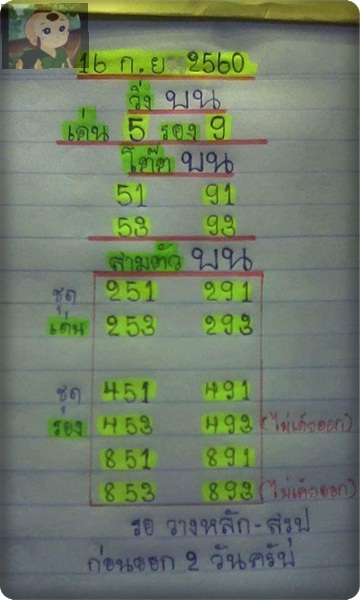 16 ก.ย 2560
วิ่ง บน
เด่น 5 รอง 9
โต๊ด บน
51 91
53 93
สามตัว บน
ชุด 251 291
เด่น 253 293
ชุด 451 491
รอง 453 493 (ไม่เคยออก)
851 891
853 893 (ไม่เคยออก)
รอ วางหลัก-สรุป
ก่อนออก 2 วันครับ